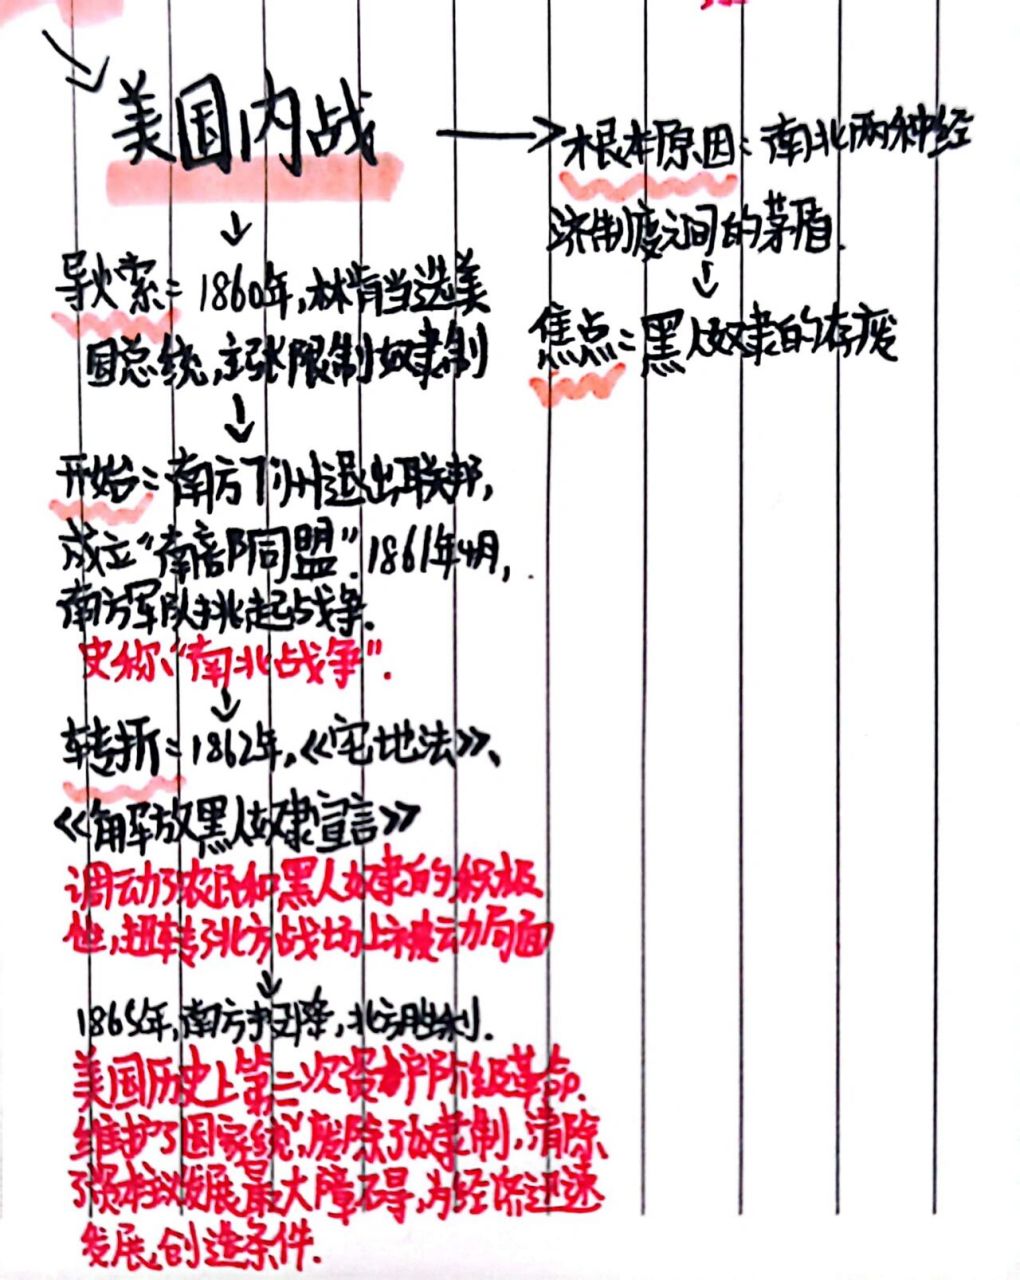 美国内战
根本原因：南北两种经
济制度之间的茅盾.
焦点：黑人奴隶的存废
导火索：1860年,林肯当选美
国总统,主张限制奴隶制
开始：南方7州退出联邦,
成立“南部同盟”.1861年4月,
南方军队挑起战争.
史称“南北战争”.
转折：1862年,《宅地法》、
《解放黑人奴隶宣言》
调动了农民和黑人奴隶的积极
性,扭转了北方战场上被动局面
1865年,南方投降,北方胜利.
美国历史上第二次资产阶级革命.
维护了国家统一,废除了奴隶制,清除
了资本主义发展最大障碍,为经济迅速
发展创造条件.